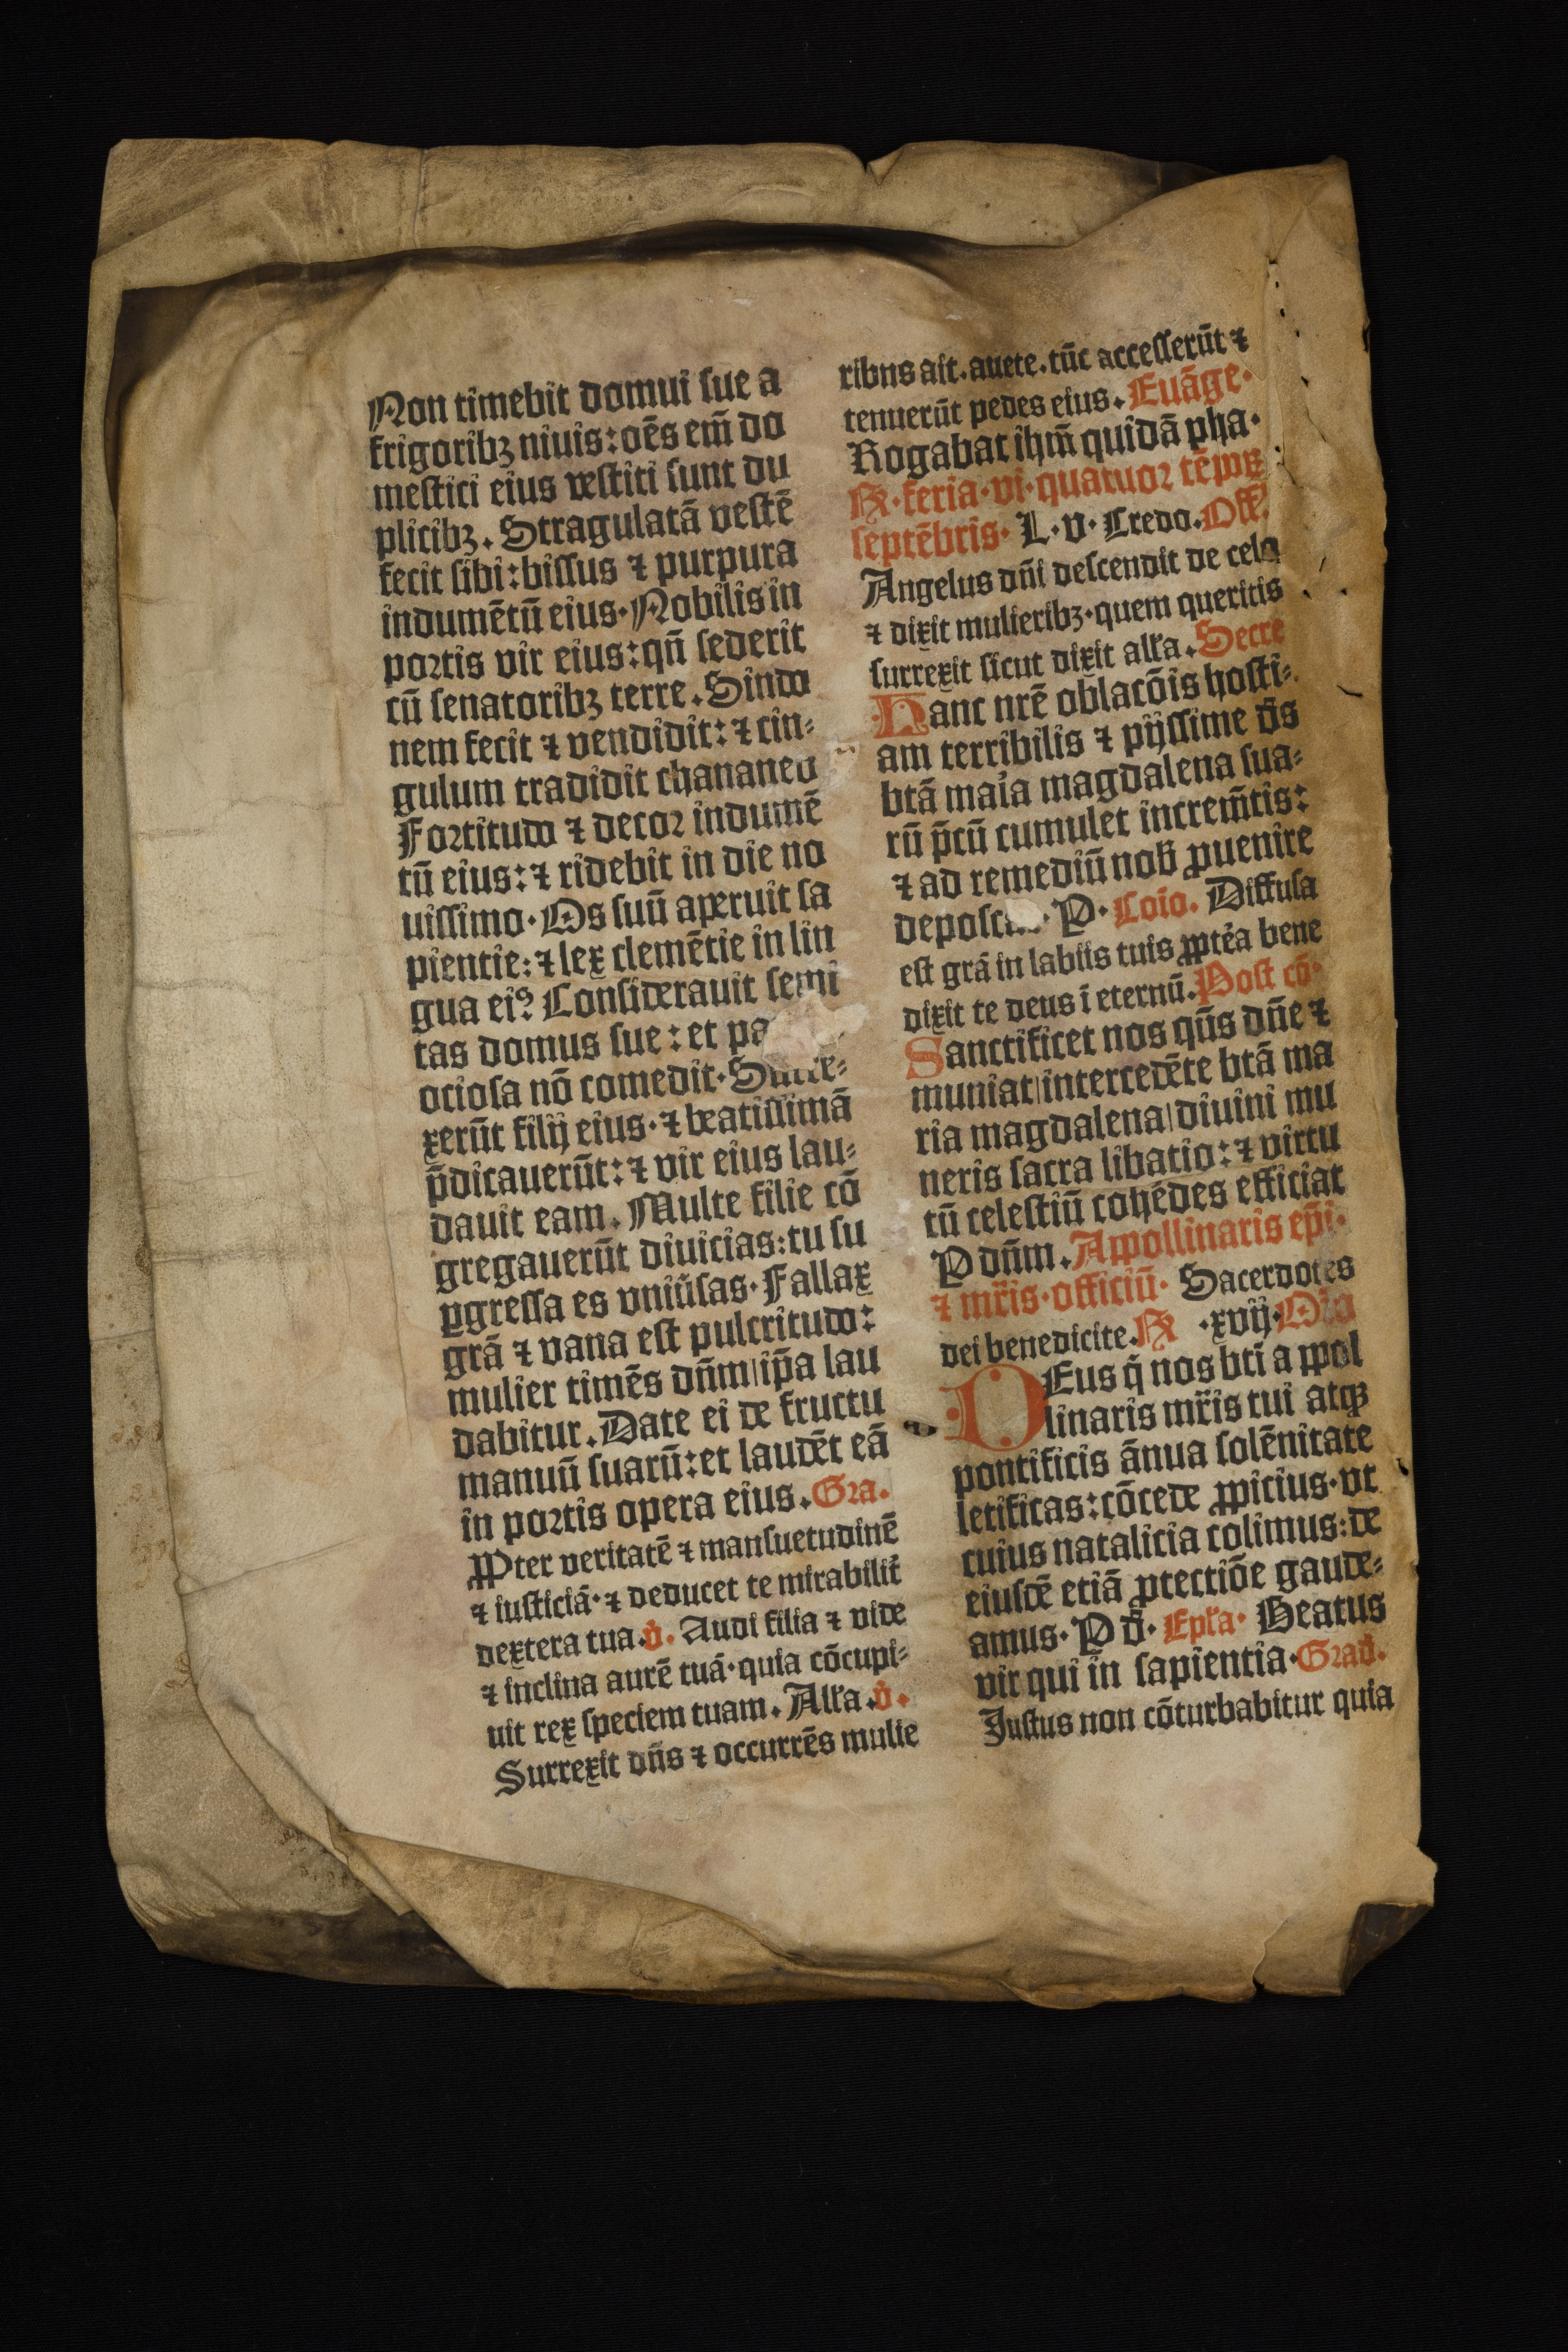 Non timebit domui sue a
frigoribꝫ niuis: oēs em̄ do
mestici eius vestiti sunt du
plicibꝫ. Stragulatā vestē
fecit sibi: bissus ⁊ purpura
indumētū eius. Nobilis in
portis vir eius: qn̄ sederit
cū senatoribꝫ terre. Sindo
nem fecit ⁊ vendidit: ⁊ cin-
gulum tradidit chananeo
Fortitudo ⁊ decor indumē
tū eius: ⁊ ridebit in die no
uissimo. Os suū aperuit sa
pientie: ⁊ lex clemētie in lin
gua eiꝰ. Considerauit semi
tas domus sue: et pa
ociosa nō comedit. Surre-
xerūt filij eius. ⁊ beatissimā
p̄dicauerūt: ⁊ vir eius lau-
dauit eam. Multe filie cō
gregauerūt diuicias: tu su
ꝑgressa es vniūsas. Fallax
grā ⁊ vana est pulcritudo:
mulier timēs dn̄m|ip̄a lau
dabitur. Date ei de fructu
manuū suarū: et laudēt eā
in portis opera eius. Gra.
PꝒter veritatē ⁊ mansuetudinē
⁊ iusticiā. ⁊ deducet te mirabilit̄
dextera tua. v̊. Audi filia ⁊ vide
⁊ inclina aurē tuā. quia cōcupi-
uit rex speciem tuam. Alľa. v̊.
Surrexit dn̄s ⁊ occurrēs mulie
ribus ait. auete. tūc accesserūt ⁊
tenuerūt pedes eius. Euāge.
Rogabat ihm̄ quidā pha.
℞. feria. vi. quatuor tēpoꝝ
septēbris. L. v. Credo. Off̄.
Angelus dn̄i descendit de celo
⁊ dixit mulieribꝫ. quem queritis
surrexit sicut dixit alľa. Secre
Hanc nrē oblacōis hosti-
am terribilis ⁊ pijssime d̄s
btā maīa magdalena sua-
rū p̄cū cumulet increm̄tis:
⁊ ad remediū nob̄ ꝓuenire
P. Coīo. Diffusa
est grā in labiis tuis ꝓptēa bene
dixit te deus ī eternū. Post cō.
Sanctificet nos qūs dn̄e ⁊
muniat|intercedēte btā ma
ria magdalena|diuini mu
neris sacra libatio: ⁊ virtu
tū celestiū cohēdes efficiat
P dn̄m. Appollinaris ep̄i.
⁊ mr̄is. officiū. Sacerdotes
dei benedicite. ℞ .xvij. Oīo
DEus q̄ nos bti appol
linaris mr̄is tui atqꝫ
pontificis ānua solēnitate
letificas: cōcede ꝓpicius. vt
cuius natalicia colimus: de
eiusdē etiā ꝓtectiōe gaude-
amus. P d̄. Epľa. Beatus
vir qui in sapientia. Grad̄.
Justus non cōturbabitur quia